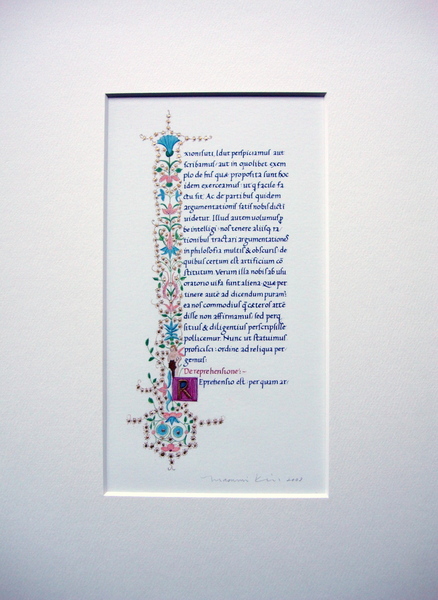 xioni futi. Id ut perspiciamus aut
scribamus: aut in quolibet exem
plo de his quæ proposita sunt hoc
idem exerceamus: ut q̄ facile fa
ctu sit. Ac de partibus quidem
argumentationis satis nobis dictū
uidetur. Illud autem uolumus
be intelligi: nos tenere aliisq; ra
tionibus tractari argumentationes
in philosophia multis & obscuris: de
quibus certum est artificium cō
stitutum. Verum illa nobis ab usu
oratorio uisa sunt aliena. quæ per
tinere autē ad dicendum putamꝰ
ea nos commodius q̄ cæteros attē
disse non affirmamus: sed perq
sitius & diligentius perscripsisse
pollicemur. Nunc ut statuimus
proficisci: ordine ad reliqua per
gemus:
De reprehensione:~
REprehensio est. per quam ar
2003